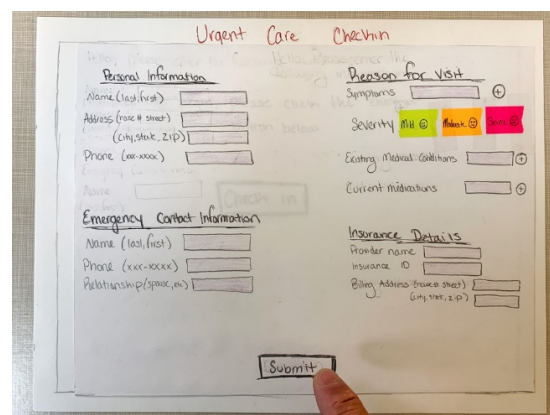 Urgent Care Checkin
Personal Information
Name (last, first)
Address (house # street)
(city, state, zip)
Phone (xxx-xxxx)
Emergency Contact Information
Name (last, first)
Phone (xxx-xxxx)
Relationship (spouse, etc)
Reason for Visit
Symptoms
Severity Mild Moderate Severe
Existing Medical Conditions
Current medications
Insurance Details
Provider name
Insurance ID
Billing Address (house # street)
(city, state, zip)
Submit
Check in